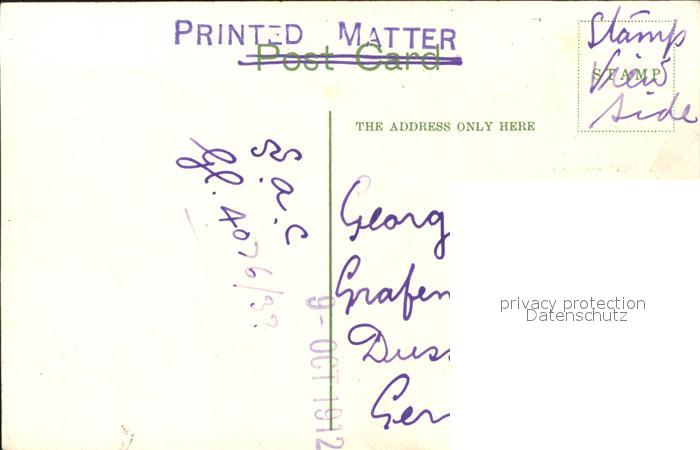 PRINTED MATTER
Post Card
Stamp
View
side
STAMP
THE ADDRESS ONLY HERE
Gl. 4076/
9-OCT 1912
Georg
Grafen
Duss
Ger
privacy protection
Datenschutz